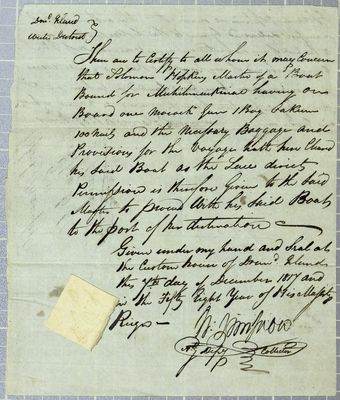 Dond. Island
These are to Certify to all whom it may Concern
that Solomon Hopkins Master of a Boat
Bound for Michilimackinac having on
Board one Mocock Gum 1 Bag
and the Necessary Baggage and
Provisions for the Voyage hath here Cleared
his Said Boat as the Law directs
Permission is therefore Given to the Said
Master to proceed With his Said Boat
to the port of her destination
Given under my hand and Seal at
the Custom House of Drumd. Island
this 4th day of December 1817 and
in the Fifty Eight Year of His Majestys
Reign
Collector